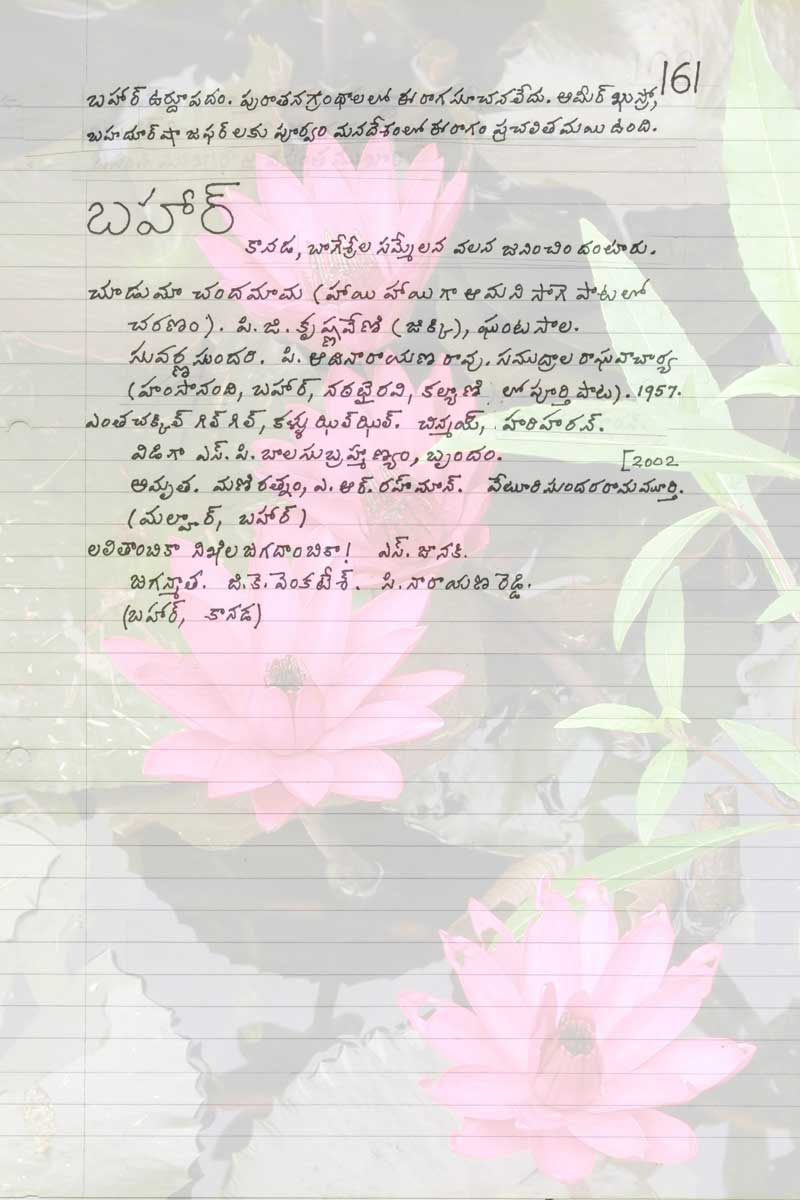 161
బహార్ ఉర్దూ పదం. పురాతన గ్రంథాలలో ఈ రాగ సూచన లేదు. అమీర్ ఖుస్రో,
బహదూర్ షా జఫర్ లకు పూర్వం మన దేశంలో ఈ రాగం ప్రచలితమయి ఉంది.
బహార్
కానడ, బాగేశ్రీల సమ్మేళన వలన జనించిందంటారు.
చూడుమా చందమామ (హాయి హాయిగా ఆమని సాగె పాటలో
చరణం). పి. జి. కృష్ణవేణి (జిక్కి), ఘంటసాల.
సువర్ణసుందరి. పి. ఆదినారాయణ రావు. సముద్రాల రాఘవాచార్య
(హంసానంది, బహార్, నఠభైరవి, కల్యాణి లో పూర్తి పాట). 1957.
ఎంత చక్కిలి గిలి గిలి, కళ్ళు ఝిల్ ఝిల్. చిన్మయి, హరిహరన్.
విడిగా ఎస్. పి. బాలసుబ్రహ్మణ్యం, బృందం. [2002
అమృత. మణిరత్నం, ఎ. ఆర్. రహ్మాన్. వేటూరి సుందరరామమూర్తి.
(మల్హార్, బహార్)
లలితాంబికా నిఖిల జగదాంబికా! ఎస్. జానకి.
జగన్మాత. జి. కె. వెంకటేశ్. సి. నారాయణ రెడ్డి.
(బహార్, కానడ)